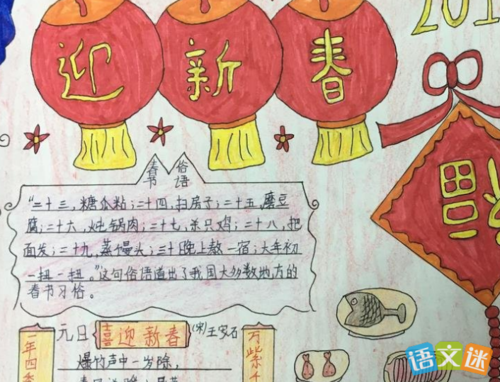 迎新春
201
福
春节俗语
"二十三,糖瓜粘;二十四,扫房子;二十五,磨豆
腐;二十六,炖锅肉;二十七,杀只鸡;二十八,把
面发;二十九,蒸馒头;三十晚上熬一宿;大年初
一扭一扭。"这句俗语道出了我国大多数地方的
春节习俗。
元日 喜迎新春 (宋)王安石
爆竹声中一岁除,
一年四
万紫千
语文迷